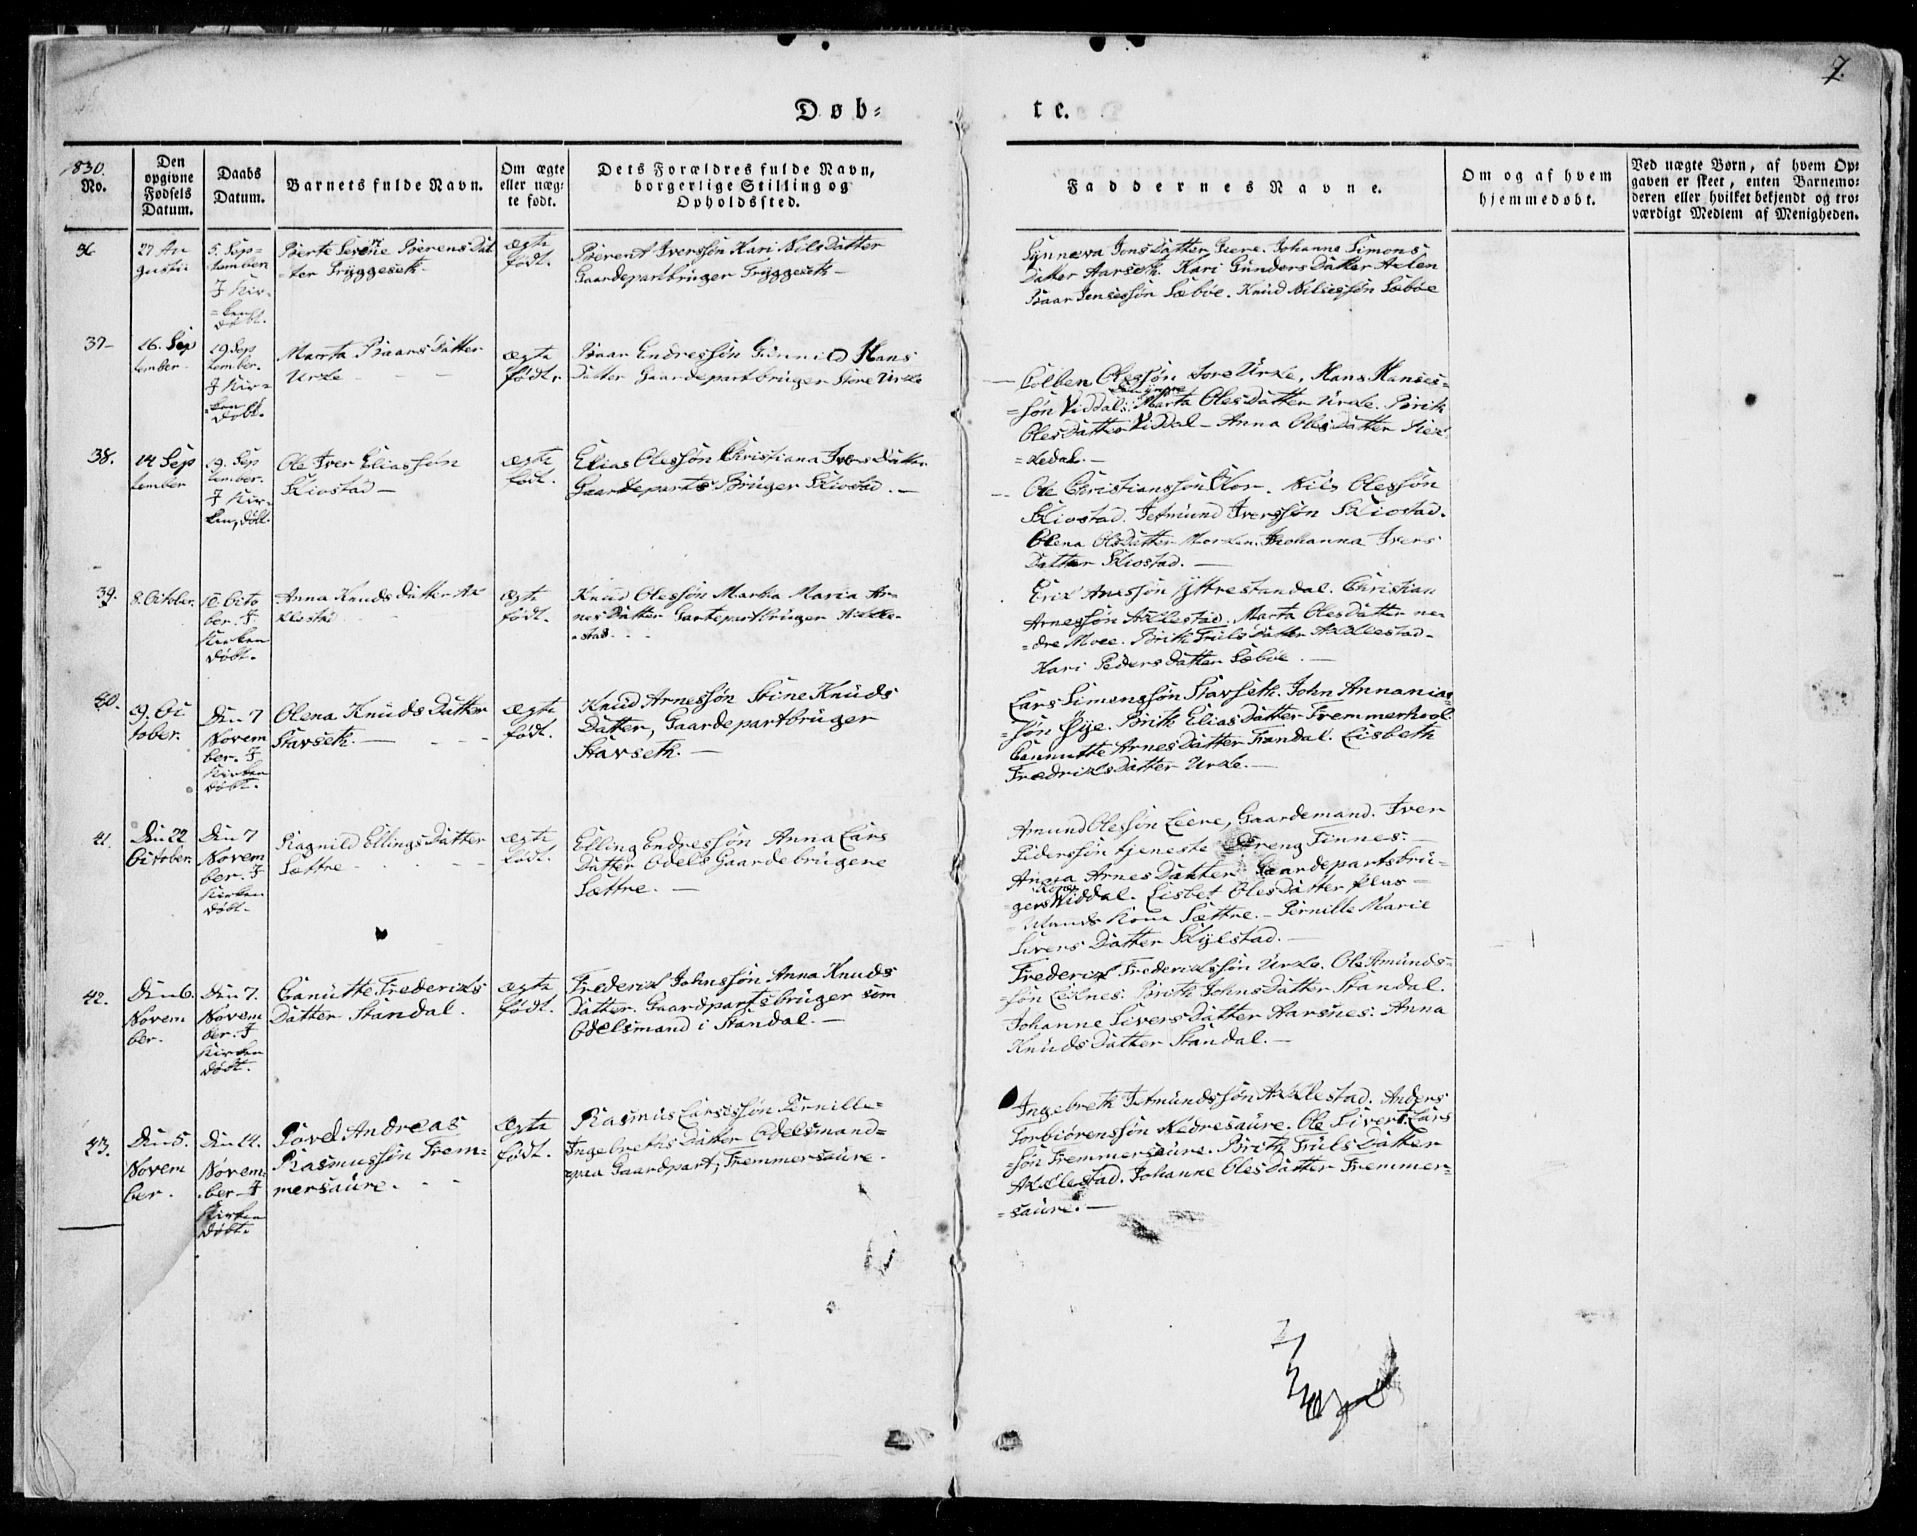 7.
Døb-
te.
1830.
No.
Den
opgivne
Fødsels
Datum.
Daabs
Datum.
Barnets fulde Navn.
Om ægte
eller uæg-
te født.
Dets Forældres fulde Navn,
borgerlige Stilling og
Opholdssted.
Faddernes Navne.
Om og af hvem
hjemmedøbt.
Ved uægte Børn, af hvem Op-
gaven er skeet, enten Barnemo-
deren eller hvilket bekjendt og tro-
værdigt Medlem af Menigheden.
36
27 Au
gusti
5. Sep-
tember
I Kir-
ken
døbt.
Berte Serene Berens Dat
ter Tryggeseth
ægte
født.
Berent Iverssøn Kari Nils Datter
Gaardepartbruger Tryggeseth
Synneva Jons Datter Johanna Simons
Datter Aarseth. Kari Gunders Datter
Baar Jensessøn Sæbøe. Knud Nilsessøn Sæbøe
37
16. Sep
tember
19 Sep
tember.
I Kir-
ken
døbt.
Marta Baars Datter
Urke
ægte
født.
Baar Endressøn Gunnild Hans
Datter Gaardepartbruger Store Urke
Colben Olessøn Urke, Hans Hanses-
søn Viddal. Marta Oles Datter Urke. Brith
Oles Datter Viddal - Anna Oles Datter
38.
14 Sep
tember
19. Sep
tember.
I Kir-
ken, døbt.
Ole Iver Eliassøn
Skiostad
ægte
født.
Elias Olessøn Christiana Ivers Datter
Gaardeparts Bruger Skiostad.
Ole Christianssøn Nils Olessøn
Skiostad. Jetmund Iverssøn Skiostad.
Olena Ols Datter Johanna Ivers
Datter Skiostad.
39.
8. October.
10. Octo
ber. I
Kirken
døbt.
Anna Knuds Datter Ak
klestad
ægte
født.
Knud Olessøn Martha Maria Ar-
nes Datter Gartepartbruger Akkle-
stad
Erik Anessøn Yttrestandal. Christian
Arnessøn Akklestad. Marta Oles Datter ne-
dre Moee. Brith Truls Datter Akklestad.
Kari Peders Datter Sæbøe.
40.
9. Oc
tober.
Den 7
Novem
ber. I
Kirken
døbt.
Olena Knuds Datter
Stavseth.
ægte
født.
Knud Arnessøn Stine Knuds
Datter, Gaardepartbruger
Stavseth.
Lars Simenssøn Stavseth. John Annanias
søn Øye. Brith Elias Datter Tremmerhool
Canutte Arnes Datter Standal. Lisbeth
Fredriks Datter Urke.
41.
Den 22
October.
Den 7
Novem
ber. I
Kirken
døbt.
Ragnild Ellings Datter
Sættre
ægte
født.
Elling Endressøn Anna Lars
Datter Odels Gaardebrugere
Sættre.
Amund Olessøn Leere, Gaardemand. Iver
Piderssøn tjeneste Dreng Finnes.
Anna Arnes Datter Gaardepartsbru-
gers Kone Widdal. Lisbet Oles Datter
Kone Sættre. - Pernille Marie
Sivers Datter Skylstad.
42.
Den 6.
Novem
ber.
Den 7.
Novem
ber. I
Kirken
døbt.
Canutte Frederiks
Datter Standal.
ægte
født.
Frederik Johnssøn Anna Knuds
Datter. Gaardpartsbruger som
Odelsmand i Standal.
Frederik Frederikssøn Urke. Ole Amunds-
søn Leknes. Brith Johns Datter Standal.
Johanne Sivers Datter Aarsnes. Anna
Knuds Datter Standal.
43.
Den 5.
Novem
ber.
Den 14.
Novem-
ber. I
Kirken
døbt.
Povel Andreas
Rasmussøn Trem-
mersaure.
ægte
født.
Rasmus Larsessøn Pernille
Ingebreths Datter Odelsmand
paa Gaardpart, Tremmersaure.
Ingebreth Jetmundssøn Akklestad. Anders
Torbiørenssøn Nedresaure. Ole Sivert Lars
søn Tremmersaure. Brith Truls Datter
Akklestad. Johanne Oles Datter Tremmer-
saure.